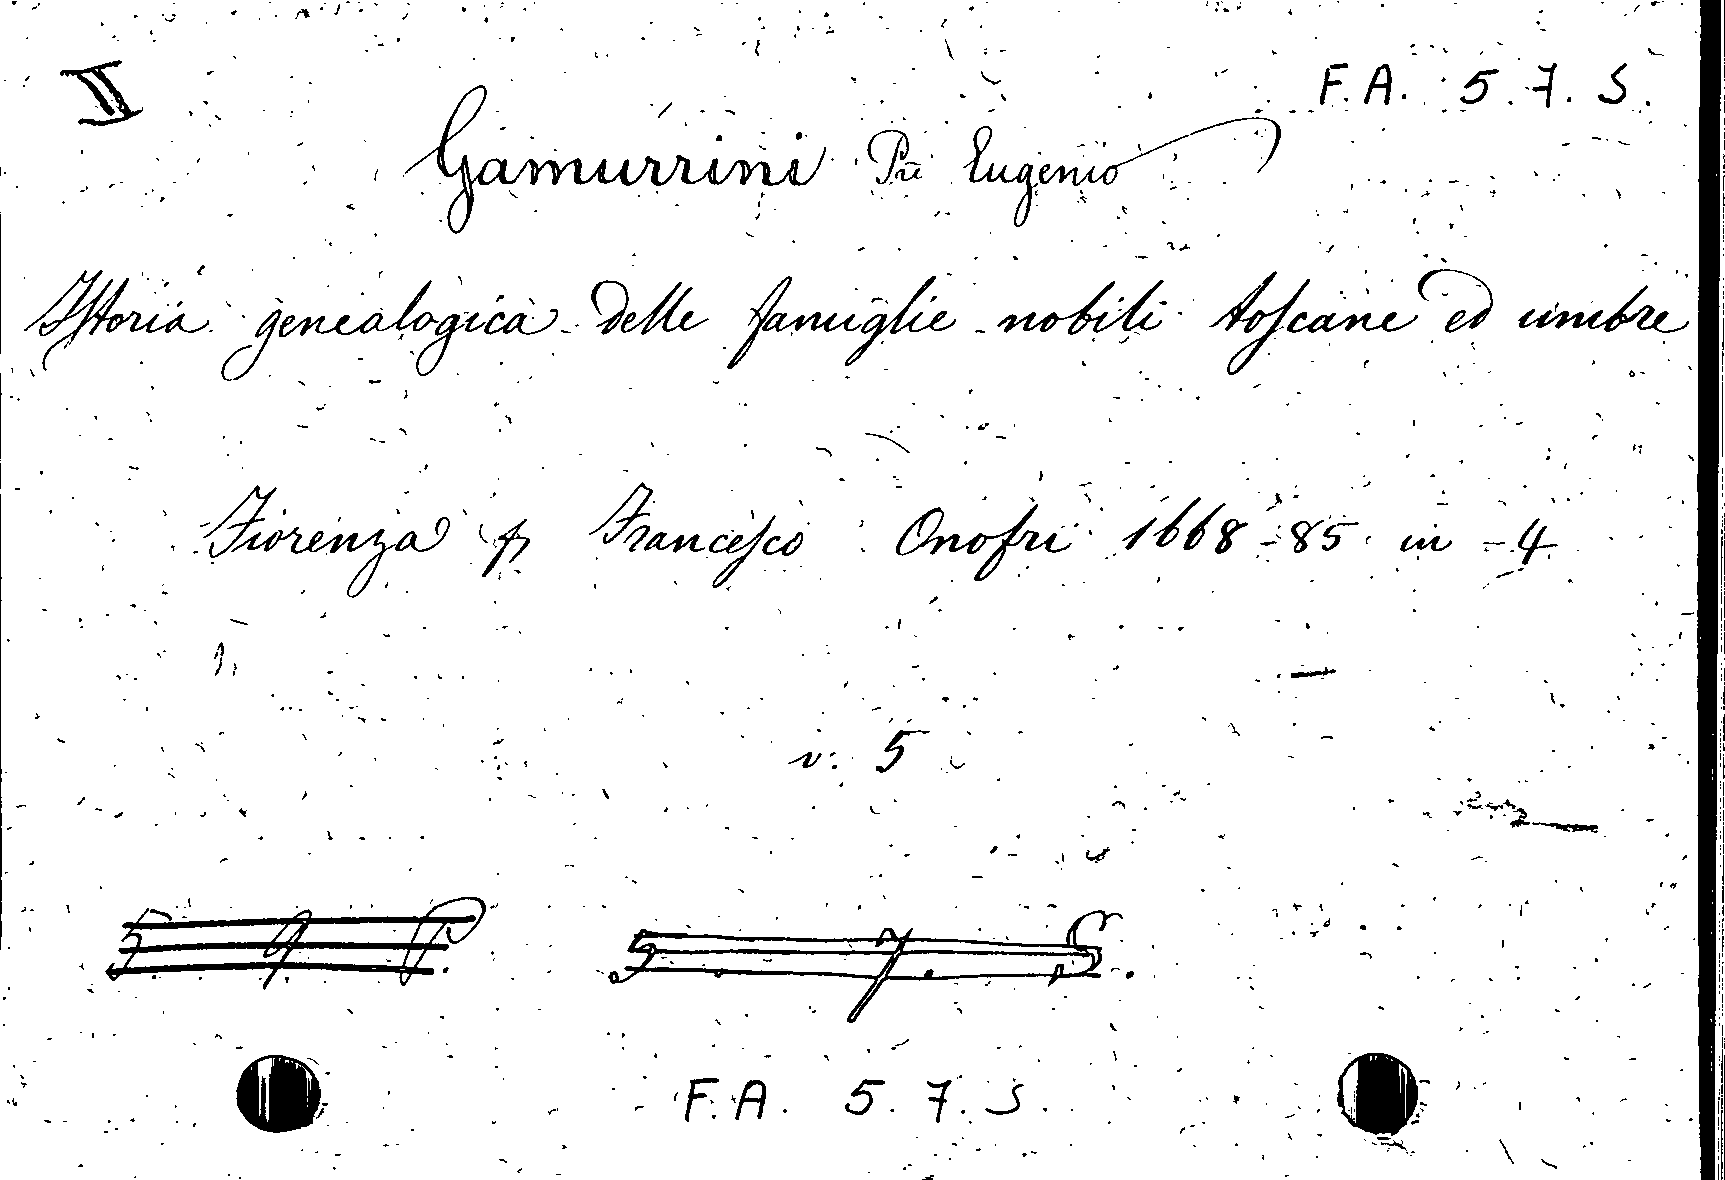 II
F. A. 5. 7. S.
Gamurrini Pre Eugenio
Istoria genealogica delle famiglie nobili toscane ed umbre
Fiorenza Francesco Onofri 1668-85 in-4
v. 5
5 9 P.
5. 7. S.
F. A. 5. 7. S.